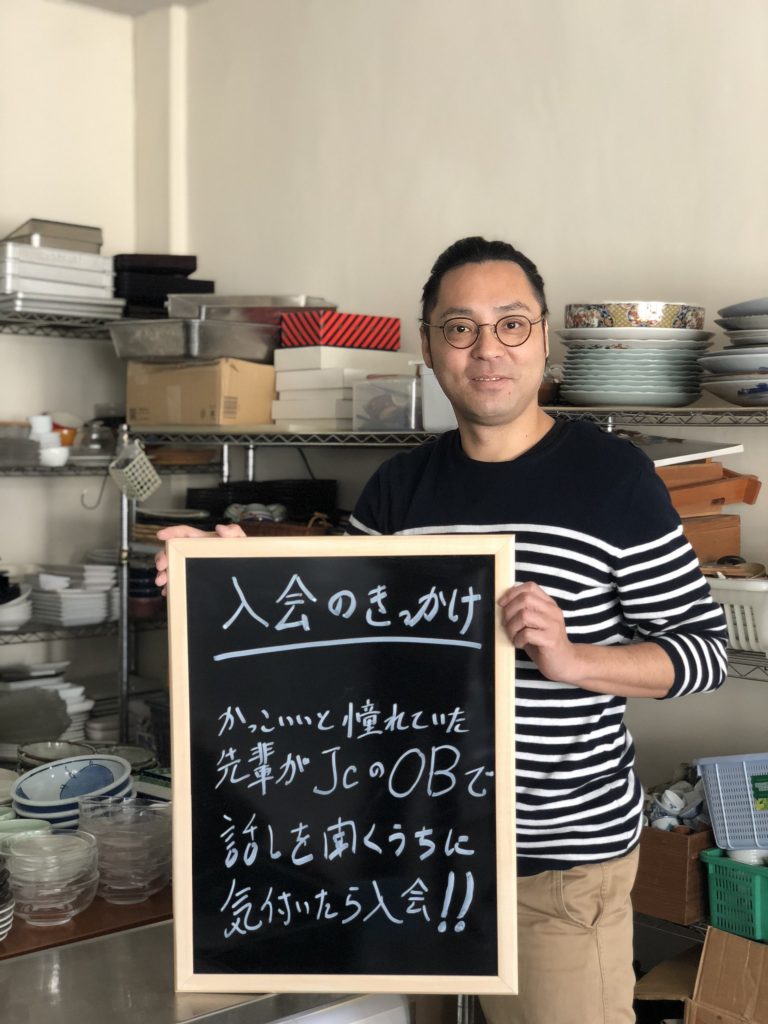 入会のきっかけ
かっこいいと憧れていた
先輩がJcのOBで
話しを聞くうちに
気付いたら入会!!